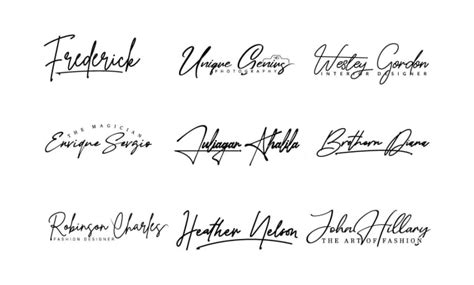 Frederick
Unique Genius
PHOTOGRAPHY
Wesley Gordon
INTERIOR DESIGNER
THE MAGICIAN
Enrique Sergio
Juliagan Ahalila
Brothern Diana
Robinson Charles
FASHION DESIGNER
Heather Nelson
John Hillary
THE ART OF FASHION